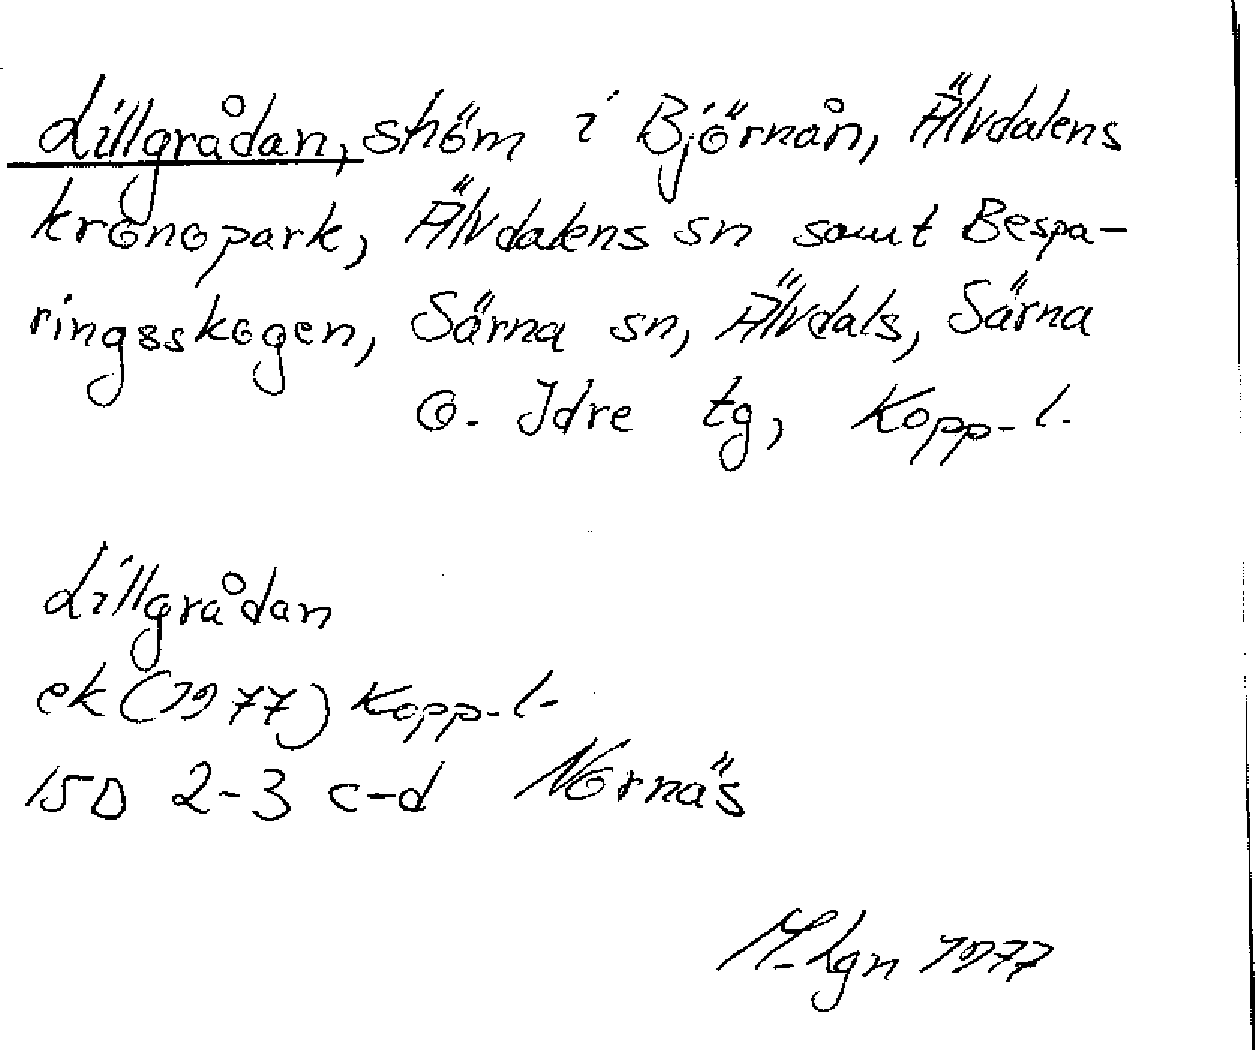 Lillgrådan, ström i Björnån, Älvdalens
kronopark, Älvdalens sn samt Bespa-
ringsskogen, Särna sn, Älvdals, Särna
o. Idre tg, Kopp. l.
Lillgrådan
ek (1977) Kopp. l.
15D 2-3 c-d Nornäs
M. Lgn 1977